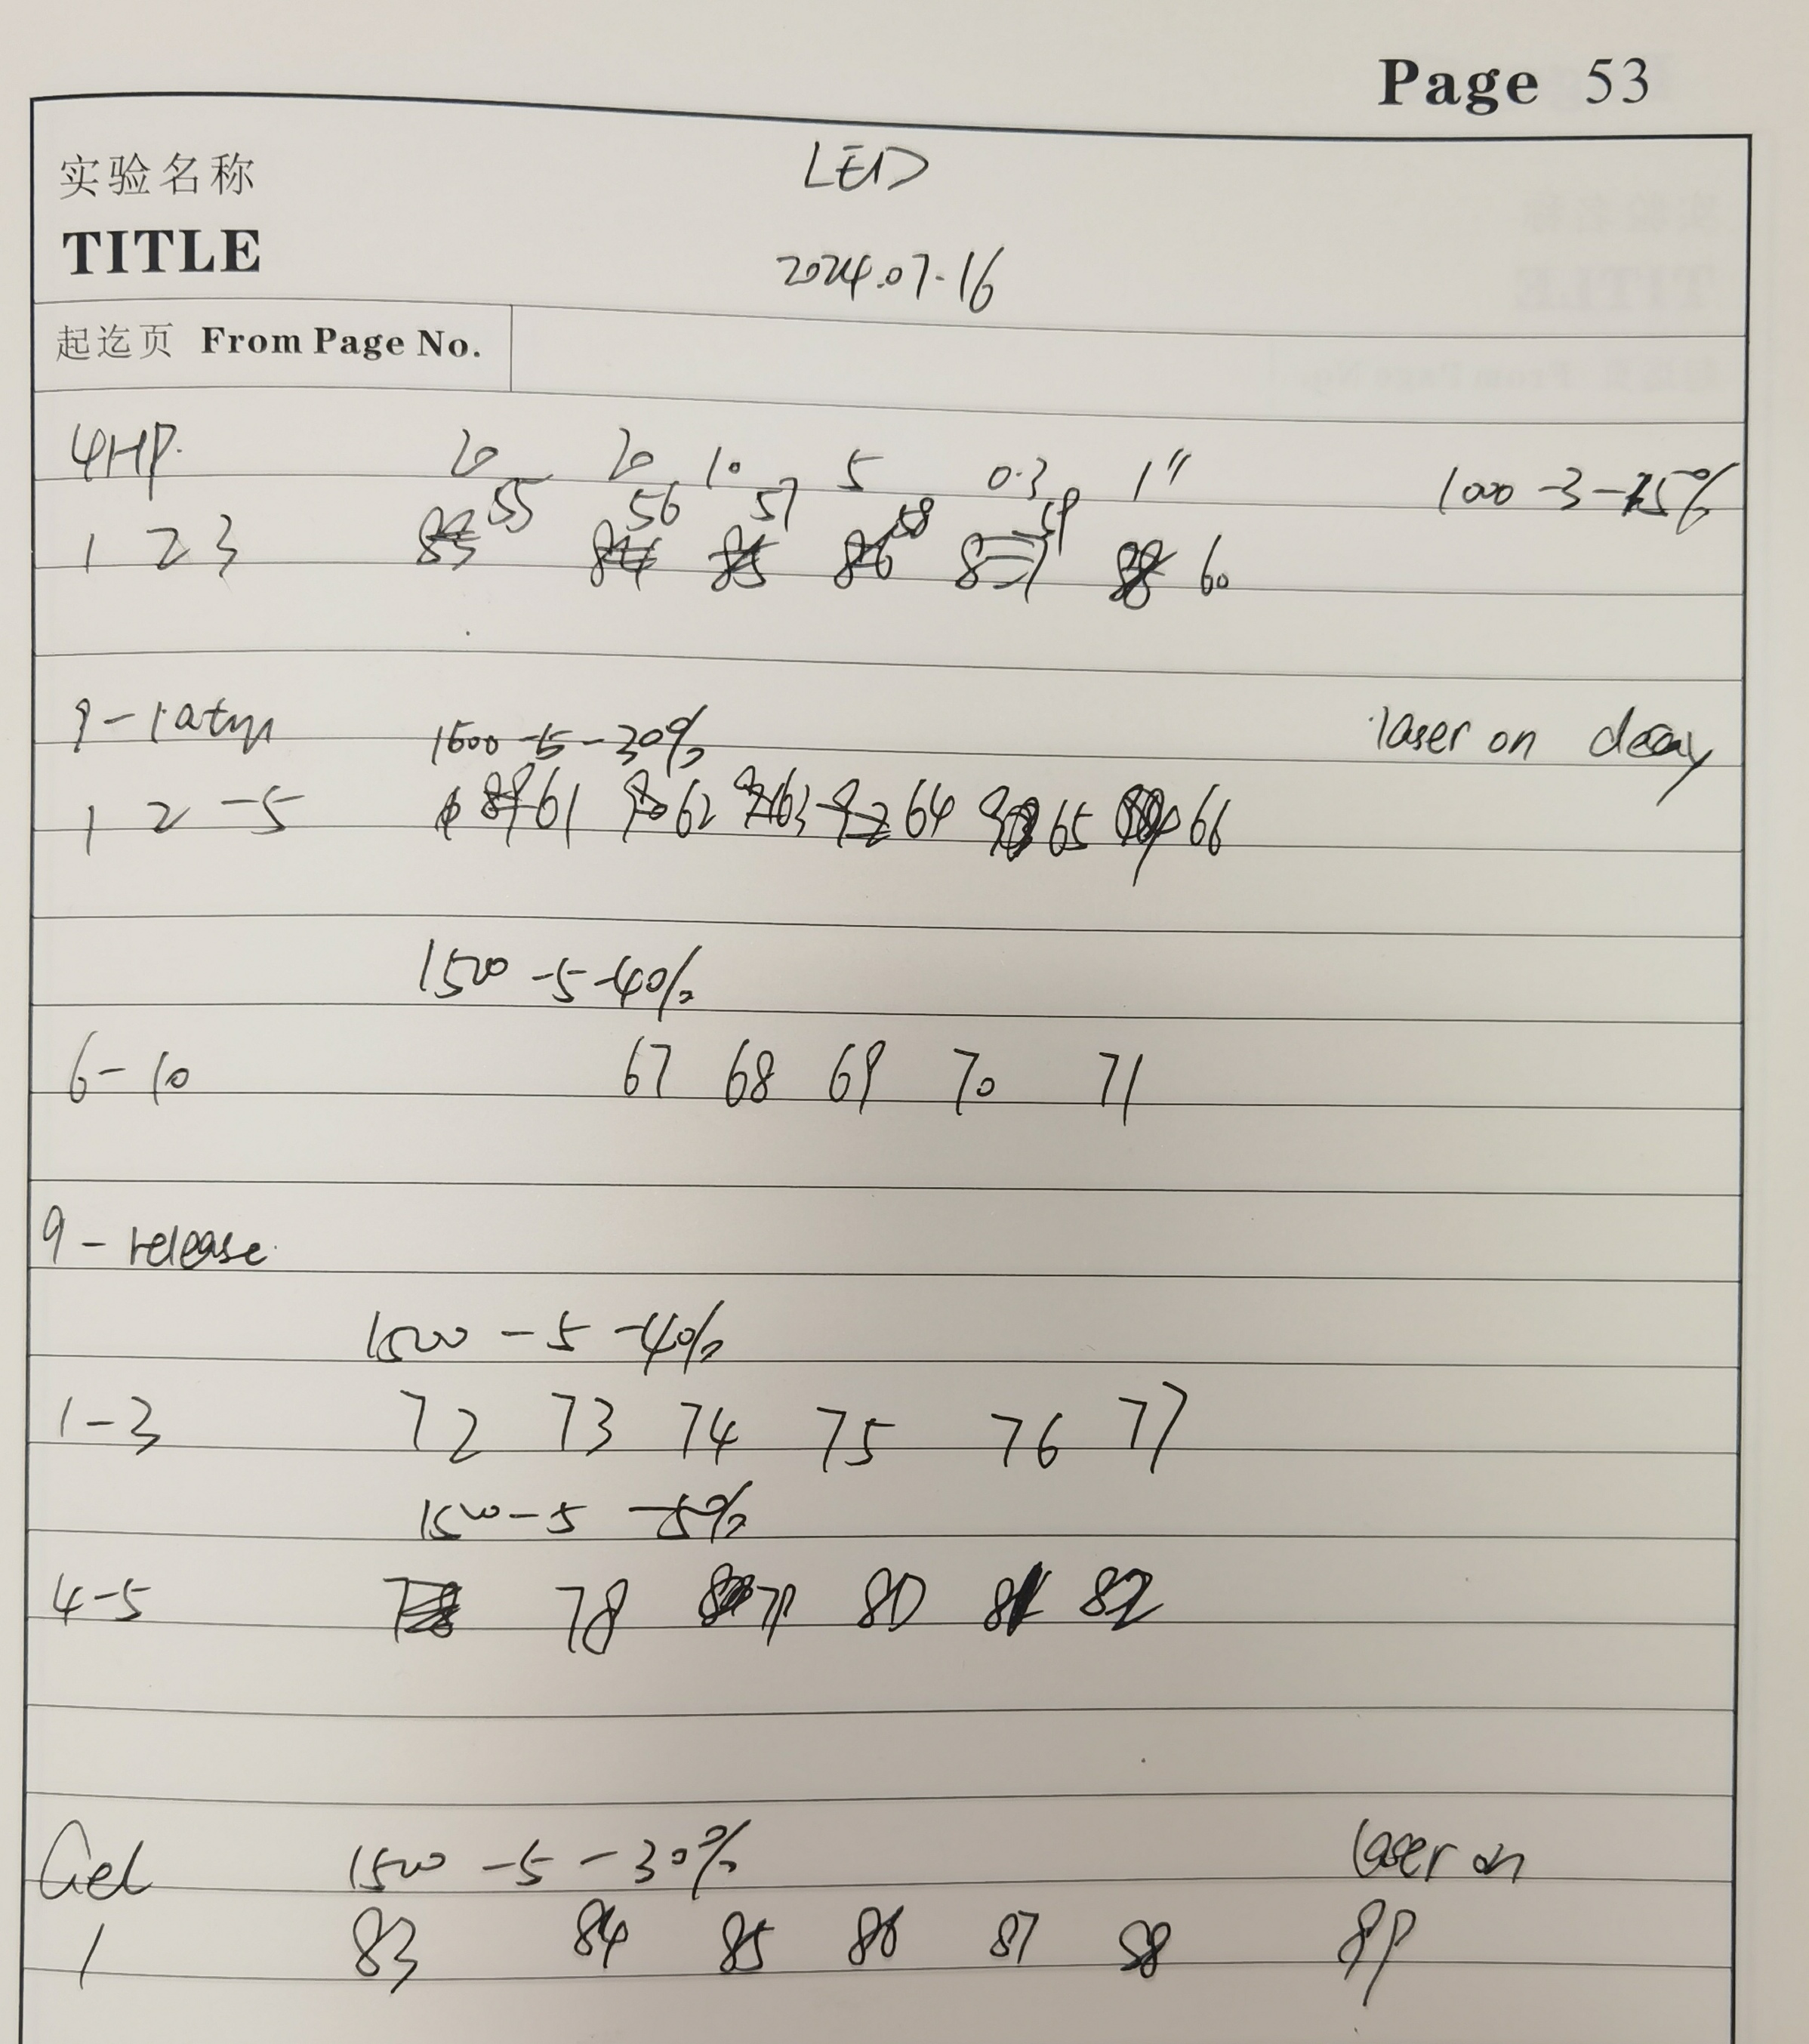 Page 53
实验名称 LED
TITLE 2024.07.16
起迄页 From Page No.
4HP. 20 20 10 5 0.3 1" 1000-3-15%
55 56 57 58 59
1 2 3 83 84 85 86 87 88 60
9-1atm 1500-5-30% laser on decay
1 2-5 89 61 90 62 63 92 64 65 66
1500-5-40%
6-10 67 68 69 70 71
9-release
1500-5-40%
1-3 72 73 74 75 76 77
1500-5-50%
4-5 78 78 79 80 81 82
Gel 1500-5-30% laser on
1 83 84 85 86 87 88 89